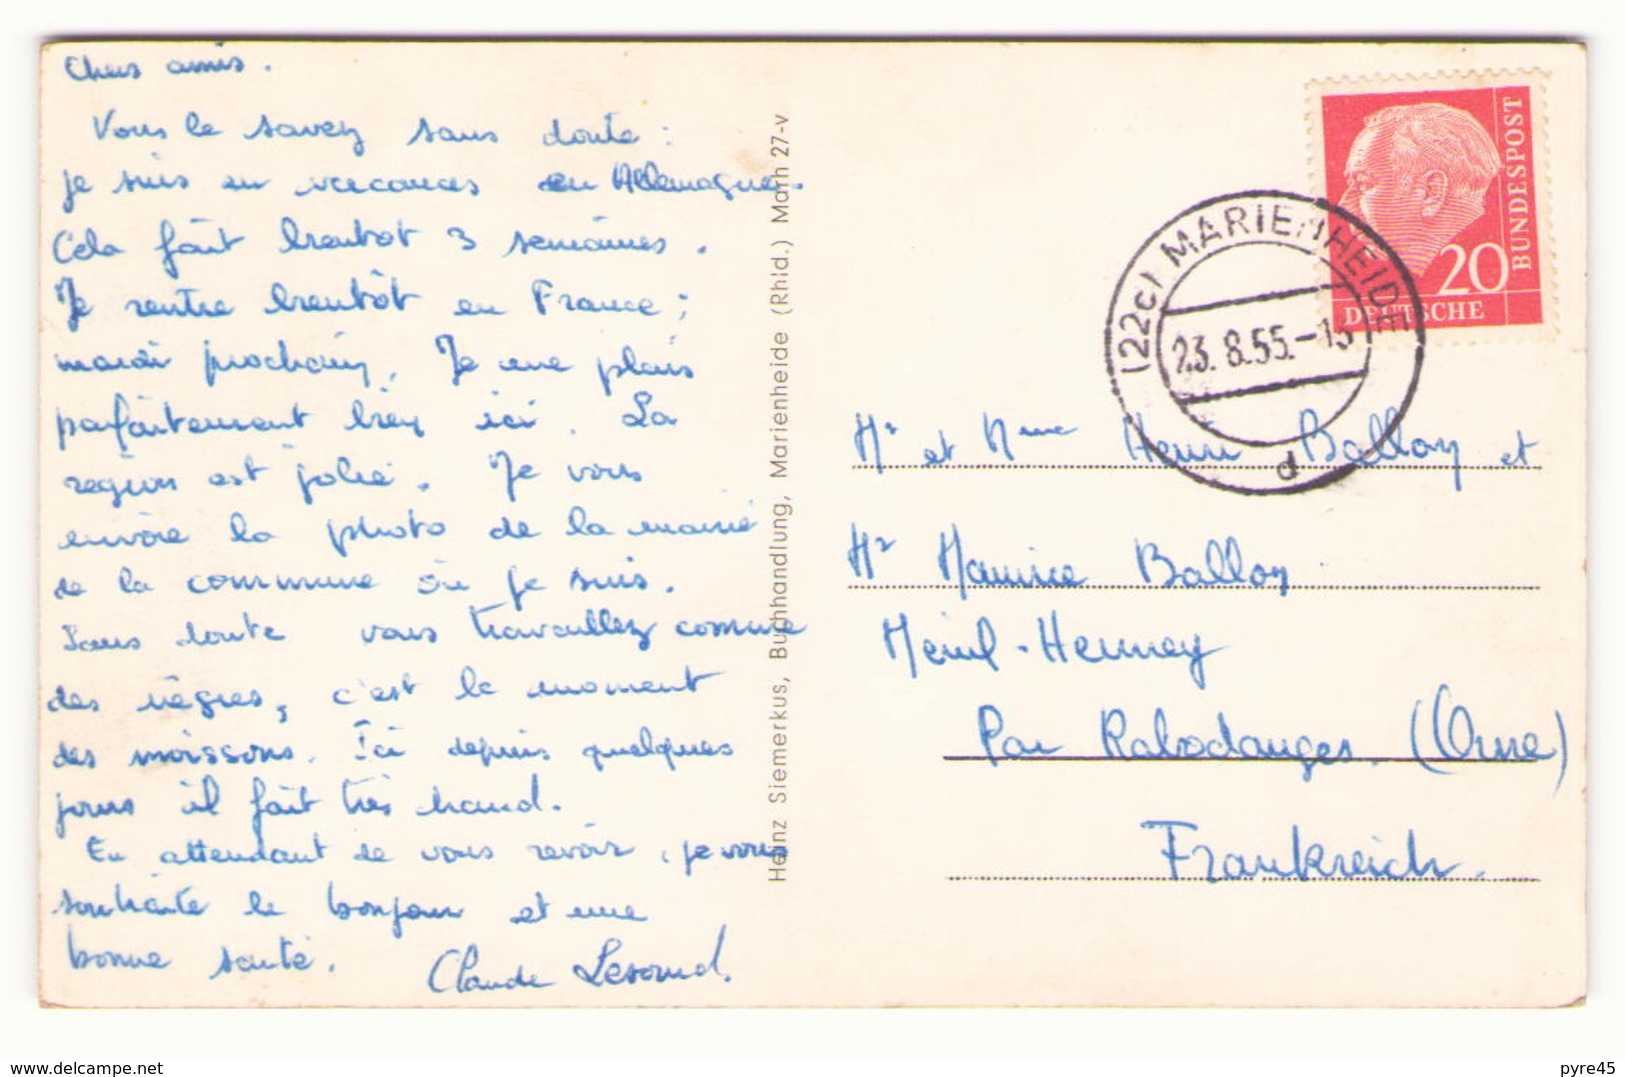 Chers amis.
Vous le savez sans doute :
je suis en vacances en Allemagne.
Cela fait bientot 3 semaines.
Je rentre bientôt en France ;
mardi prochain. Je me plais
parfaitement bien ici. La
région est jolie. Je vous
envoie la photo de la mairie
de la commune où je suis.
Sans doute vous travaillez comme
des nègres, c'est le moment
des moissons. Ici depuis quelques
jours il fait très chaud.
En attendant de vous revoir, je vous
souhaite le bonjour et une
bonne santé. Claude Lesourd.
Heinz Siemerkus, Buchhandlung, Marienheide (Rhld.) Marh 27-v
DEUTSCHE BUNDESPOST
20
(22c) MARIENHEIDE
23. 8.55.-13
d
Mr et Mme Henri Ballon et
Mr Maurice Ballon
Mênil-Hermey
Par Rabodanges. (Orne)
Frankreich.
www.delcampe.net
pyre45